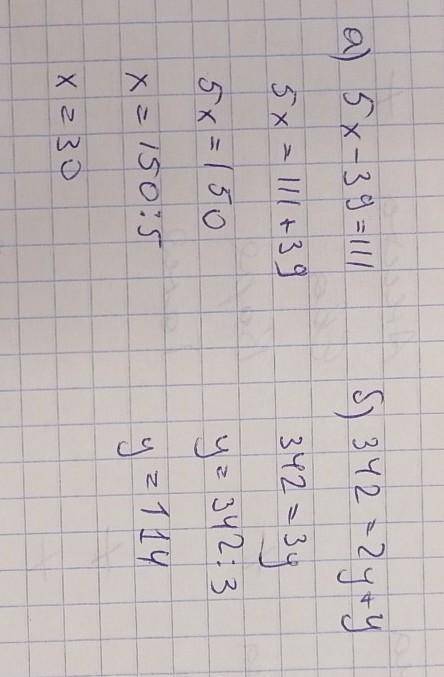 а) 5x - 39 = 111
5x = 111 + 39
5x = 150
x = 150 : 5
x = 30
б) 342 = 2y + y
342 = 3y
y = 342 : 3
y = 114